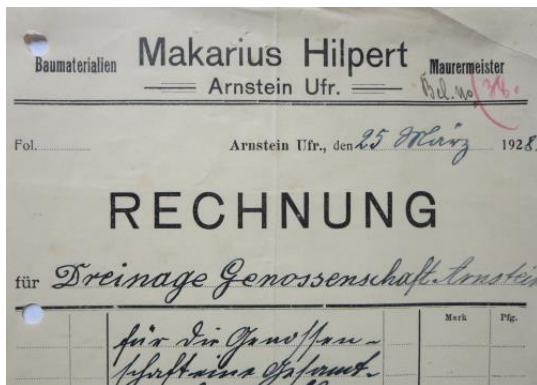 Baumaterialien Makarius Hilpert Maurermeister
Arnstein Ufr.
Bel. No 38.
Fol. Arnstein Ufr., den 25 März 1928.
RECHNUNG
für Dreinage Genossenschaft Arnstein
Mark Pfg.
für die Genossen-
schaft eine Gesamt-